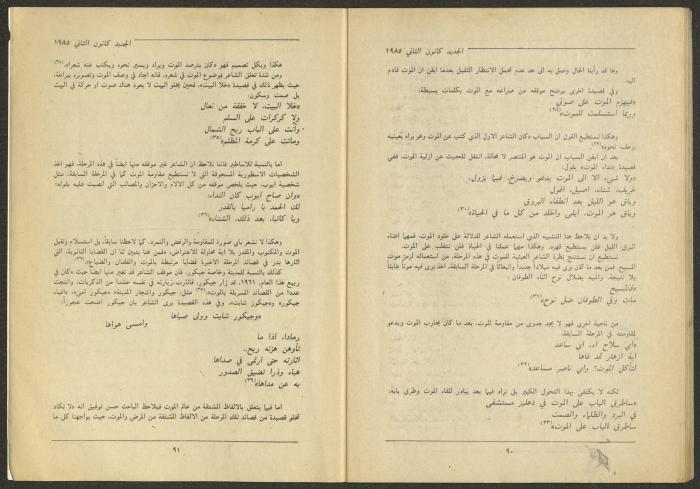 الجديد كانون الثاني ١٩٨٥
وها قد رأينا الحال وصل به الى حد عدم تحمل الانتظار الثقيل بعدما ايقن ان الموت قادم
اليه.
وفي قصيدة اخرى يوضح موقفه من صراعه مع الموت بكلمات بسيطة:
«فيهزم الموت على صوتي
وربما استسلمت للموت»(٢٨)
وهكذا نستطيع القول ان السياب «كان الشاعر الاول الذي كتب عن الموت وهو يراه بعينيه
يزحف نحوه»(٢٩)
بعد ان ايقن السياب ان الموت هو المنتصر لا محالة، انتقل للحديث عن ازلية الموت، ففي
قصيدة «نداء الموت» يقول:
«ولا شيء الا الى الموت يدعو ويصرخ، فيما يزول،
خريف، شتاء، اصيل، افول
وباق هو الليل بعد انطفاء البروق
وباق هو الموت، ابقى واخلد من كل ما في الحياة»(٣٠)
ولا بد ان نلاحظ هنا التشبيه الذي استعمله الشاعر للدلالة على خلود الموت، فمهما أضاء
البرق الليل فلن يستطيع قهره، وهكذا مهما عملنا في الحياة فلن نتغلب على الموت.
نستطيع ان نستنتج نظرة الشاعر العبثية للموت في هذه المرحلة، من استعماله لرمز موت
المسيح، فمن بعد ما كان يرى فيه ميلاداً جديداً وانبعاثاً في المرحلة السابقة، اخذ يرى فيه موتاً عابثاً
بلا نتيجة، واشبه بضلال نوح اثناء الطوفان:
«فالمسيح
مات وفي الطوفان ضل نوح»(٣١)
من ناحية اخرى فهو لا يجد جدوى من مقاومة الموت، بعد ما كان يحارب الموت ويدعو
لمقاومته في المرحلة السابقة:
«أي سلاح آه، أي ساعد
أية ازهار تمد فاها
لتأكل الموت؟ وأي ناصر مساعد»(٣٢)
لكنه لا يكتفي بهذا التحول الكبير بل نراه فيما بعد يبادر للقاء الموت وطرق بابه:
«سأطرق الباب على الموت في دهليز مستشفى
في البرد والظلماء والصمت
سأطرق الباب على الموت»(٣٣)
٩٠
الجديد كانون الثاني ١٩٨٥
هكذا وبكل تصميم فهو «كان يترصد الموت ويراه ويسير نحوه ويكتب عنه شعراً»(٣٤)
ومن شدة تعلق الشاعر بموضوع الموت في شعره، فانه أجاد في وصف الموت وتصويره ببراعة،
حيث يظهر ذلك في قصيدة «خلا البيت»، فحين يخلو البيت لا يعود هناك صوت او حركة في البيت
بل صمت وسكون:
«خلا البيت، لا خفقة من نعال
ولا كركرات على السلم
وأنت على الباب ريح الشمال
وماتت على كرمة المظلم»(٣٥)
اما بالنسبة للأساطير فاننا نلاحظ ان الشاعر غير موقفه منها ايضاً في هذه المرحلة، فهو اخذ
الشخصيات الاسطورية المسحوقة التي لا تستطيع مقاومة الموت كما في المرحلة السابقة، مثل
شخصية ايوب، حيث يلخص موقفه من كل الآلام والاحزان والمصائب التي انصبت عليه بقوله:
«وان صاح ايوب كان النداء:
لك الحمد يا رامياً بالقدر
ويا كاتباً، بعد ذلك، الشفاء»(٣٦)
وهكذا لا نشعر باي صورة للمقاومة والرفض والتمرد، كما لاحظنا سابقاً، بل استسلام وتقبل
الموت المكتوب والمقدر بلا اية محاولة للاعتراض، «فمن هنا يتبين لنا ان القضايا الثانوية، التي
اثارها بدر في قصائد المرحلة الاخيرة قضايا مرتبطة بالموت والفقدان والضياع»(٣٧)
كذلك بالنسبة للمدينة وخاصة جيكور، فان موقف الشاعر قد تغير منها ايضاً حيث «كان في
ربيع هذا العام، ١٩٦٢، قد زار جيكور، فاثارت زيارته في نفسه حشداً من الذكريات، وانتجت
عدداً من القصائد المسربلة بالموت»(٣٨) مثل: جيكور واشجار المدينة»، «جيكور امي»، «افياء
جيكور» و«جيكور شابت»، وفي هذه القصيدة يرى الشاعر بان جيكور اضحت عجوزاً:
«وجيكور شابت وولى صباها
وأمسى هواها
رماداً، اذا ما
تأوهن هزته ريح..
اثارته حتى ارتمى في صداها
هباء وذراً تضيق الصدور
به عن مداها»(٣٩)
اما فيما يتعلق بالالفاظ المشتقة من عالم الموت فيلاحظ الباحث حسن توفيق انه «لا تكاد
تخلو قصيدة من قصائد تلك المرحلة من الالفاظ المشتقة من المرض والموت، حيث يواجهنا كل ما
٩١